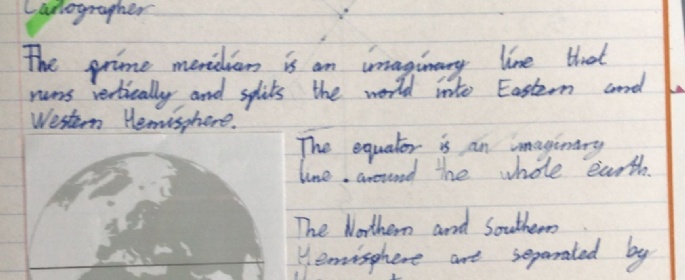 Cartographer
The prime meridian is an imaginary line that
runs vertically and splits the world into Eastern and
Western Hemisphere.
The equator is an imaginary
line around the whole earth.
The Northern and Southern
Hemisphere are separated by